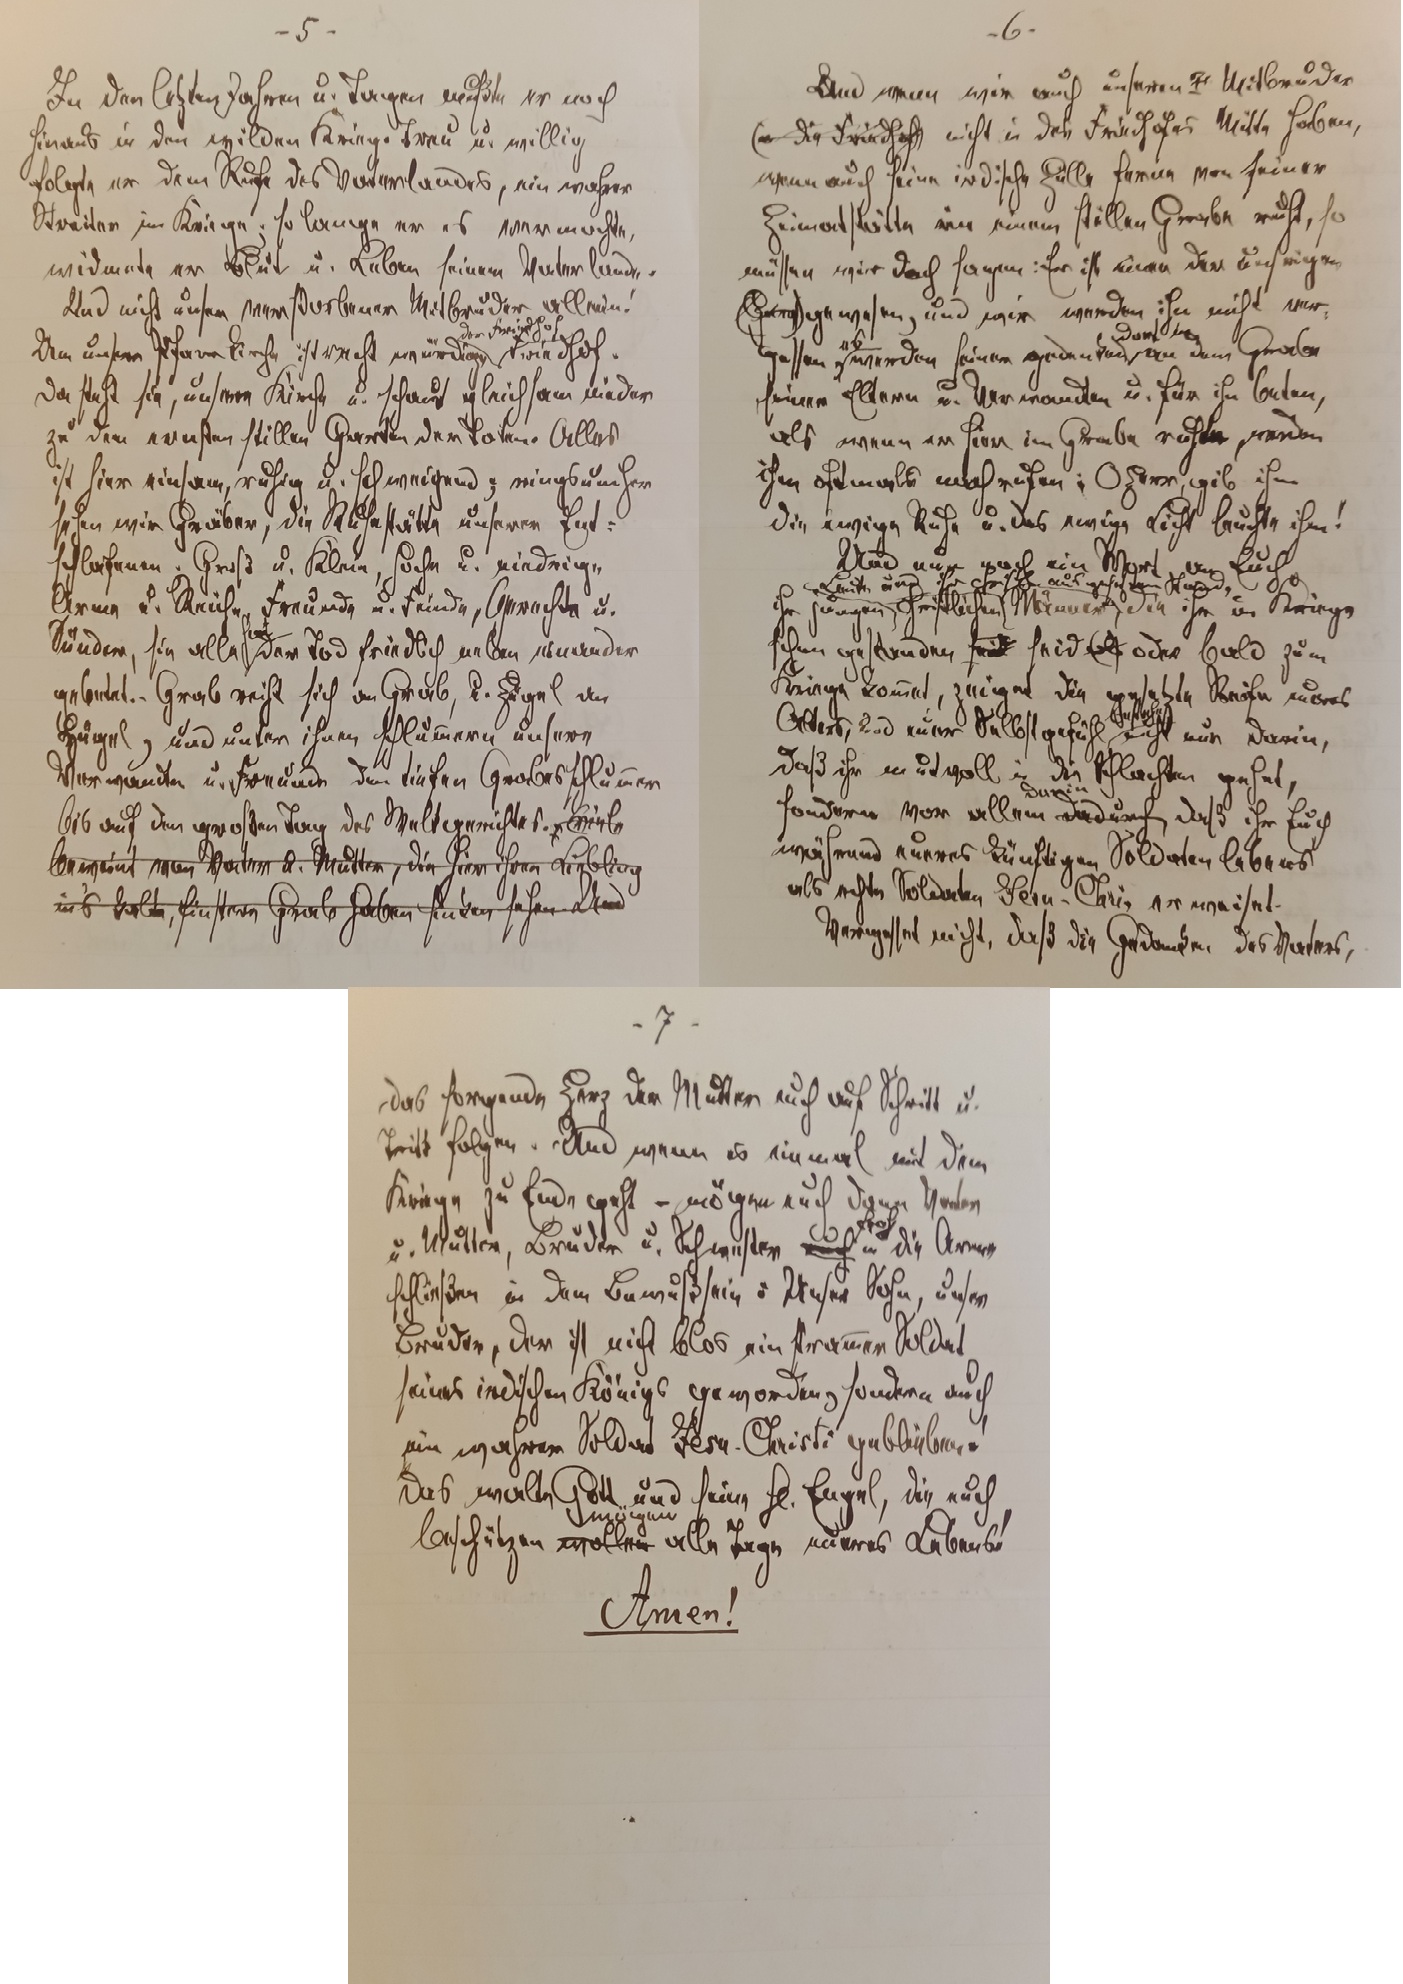 - 5 -
In den letzten Jahren u. Tagen mußte er noch
hinaus in den wilden Krieg. Treu u. willig
folgte er dem Rufe des Vaterlandes, ein wahrer
Streiter im Kriege; so lange er es vermochte,
widmete er Blut u. Leben seinem Vaterlande.
Und nicht unser verstorbener Mitbruder allein!
der Friedhof
Um unsere Pfarrkirche ist recht würdig Friedhof.
Da steht sie, unsere Kirche u. schaut gleichsam nieder
zu dem ernsten stillen Garten der Toten. Alles
ist hier einsam, ruhig u. schweigend; ringsumher
sehen wir Gräber, die Ruhestätte unserer Ent-
schlafenen. Groß u. Klein, hohe u. niedrige
Arme u. Reiche, Freunde u. Feinde, Gerechte u.
hat
Sünder, sie alle der Tod friedlich neben einander
gebettet. Grab reiht sich an Grab, u. Hügel an
Hügel, und unter ihnen schlummern unsere
Verwandte u. Freunde den tiefen Grabesschlummer
bis auf den großen Tag des Weltgerichtes. Viele
beweint von Vater u. Mutter, die hier ihren Liebling
in's kalte, finstere Grab haben sinken sehen. Und
- 6 -
Und wenn wir auch unseren † Mitbruder
(die Friedhof) nicht in des Friedhofes Mitte haben,
wenn auch seine irdische Hülle ferne von seiner
Heimatstätte in einem stillen Grabe ruht, so
müssen wir doch sagen: Er ist einer der unsrigen
gewesen, und wir werden ihn nicht ver-
dort
gessen, werden seiner gedenken an dem Grabe
seiner Eltern u. Verwandten u. für ihn beten,
als wenn er hier im Grabe ruhte, werden
ihm oftmals nachrufen: O Herr, gib ihm
die ewige Ruhe u. das ewige Licht leuchte ihm!
Und nun noch ein Wort an Euch
Leute und ihr christen aus gesetzten Stand,
ihr jungen, christlichen Männer, die ihr im Kriege
schon gestanden seid oder bald zum
Kriege kommt, zeiget die gesetzte Reife eures
Alters, und euer Selbstgefühl nicht nur darin,
daß ihr mutvoll in die Schlachten gehet,
darin
sondern vor allem dadurch, daß ihr Euch
während eueres künftigen Soldatenlebens
als echte Soldaten Jesu-Chri, erweiset.
Vergesset nicht, daß die Gedanken des Vaters,
- 7 -
das sorgende Herz der Mutter euch auf Schritt u.
Tritt folgen. Und wenn es einmal mit dem
Kriege zu Ende geht – mögen euch dann Vater
froh
u. Mutter, Bruder u. Schwester euch in die Arme
schließen in dem Bewußtsein: Unser Sohn, unser
Bruder, der ist nicht blos ein strammer Soldat
seines irdischen Königs geworden, sondern auch
ein wahrer Soldat Jesu-Christi geblieben!
Das walte Gott und seine hl. Engel, die euch
mögen
beschützen wollen alle Tage eueres Lebens!
Amen!